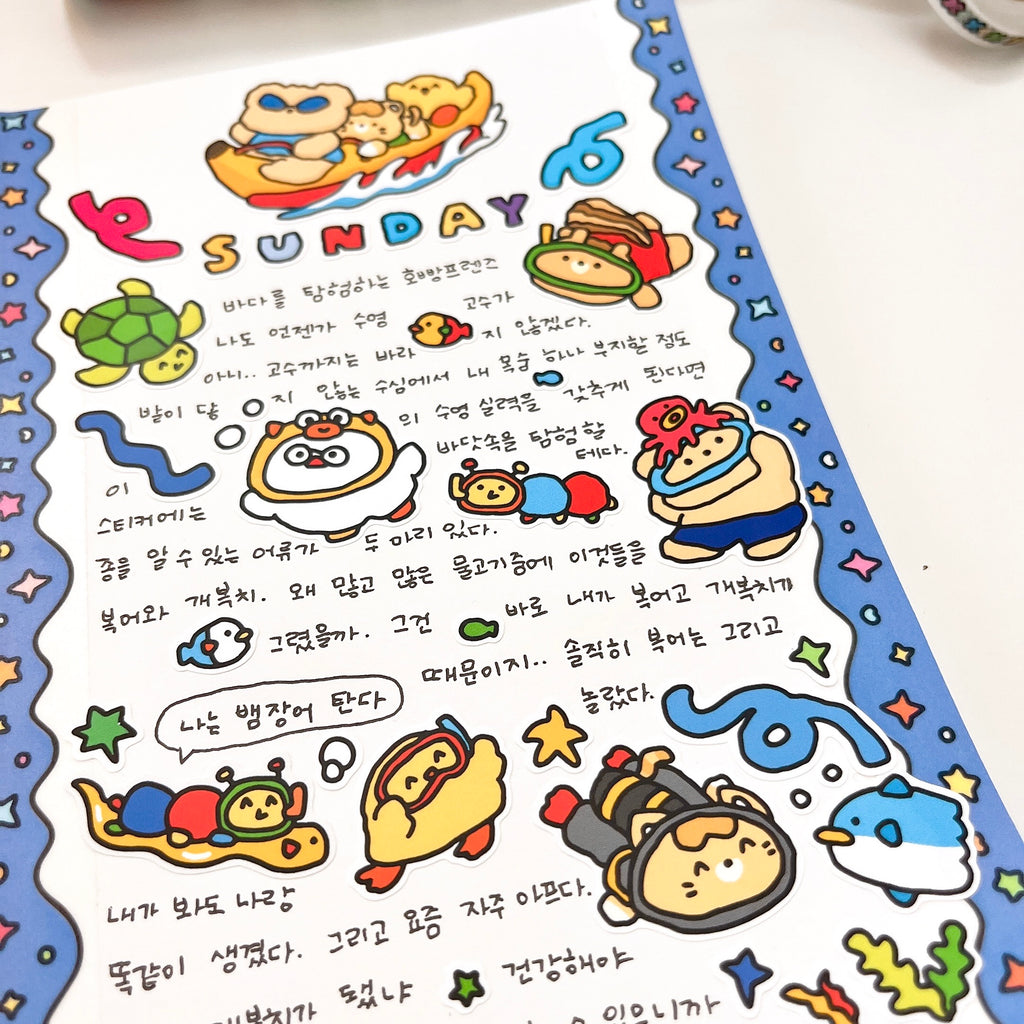 SUNDAY
바다를 탐험하는 호빵프렌즈
나도 언젠가 수영 고수가
지 않겠다.
아니.. 고수까지는 바라
발이 닿지 않는 수심에서 내 목숨 하나 부지할 정도
의 수영 실력을 갖추게 된다면
바닷속을 탐험할
테다.
이
스티커에는
종을 알 수 있는 어류가 두 마리 있다.
복어와 개복치. 왜 많고 많은 물고기중에 이것들을
그렸을까. 그건 바로 내가 복어고 개복치기
때문이지.. 솔직히 복어는 그리고
놀랐다.
나는 뱀장어 탄다
내가 봐도 나랑
똑같이 생겼다. 그리고 요즘 자주 아프다.
개복치가 됐냐 건강해야
수 있으니까